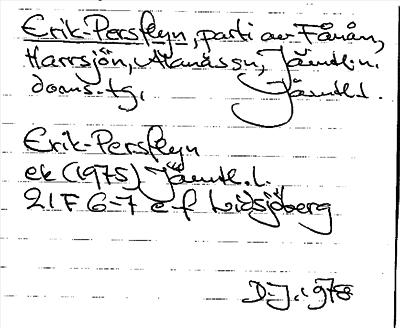 Erik-Persflyn, parti av Fånån,
Harrsjön, Alanäs sn, Jämtl. n.
doms. tg, Jämtl. l.
Erik-Persflyn
ek (1975) Jämtl. l.
21F 6-7 e-f Lidsjöberg
D.J. 1978